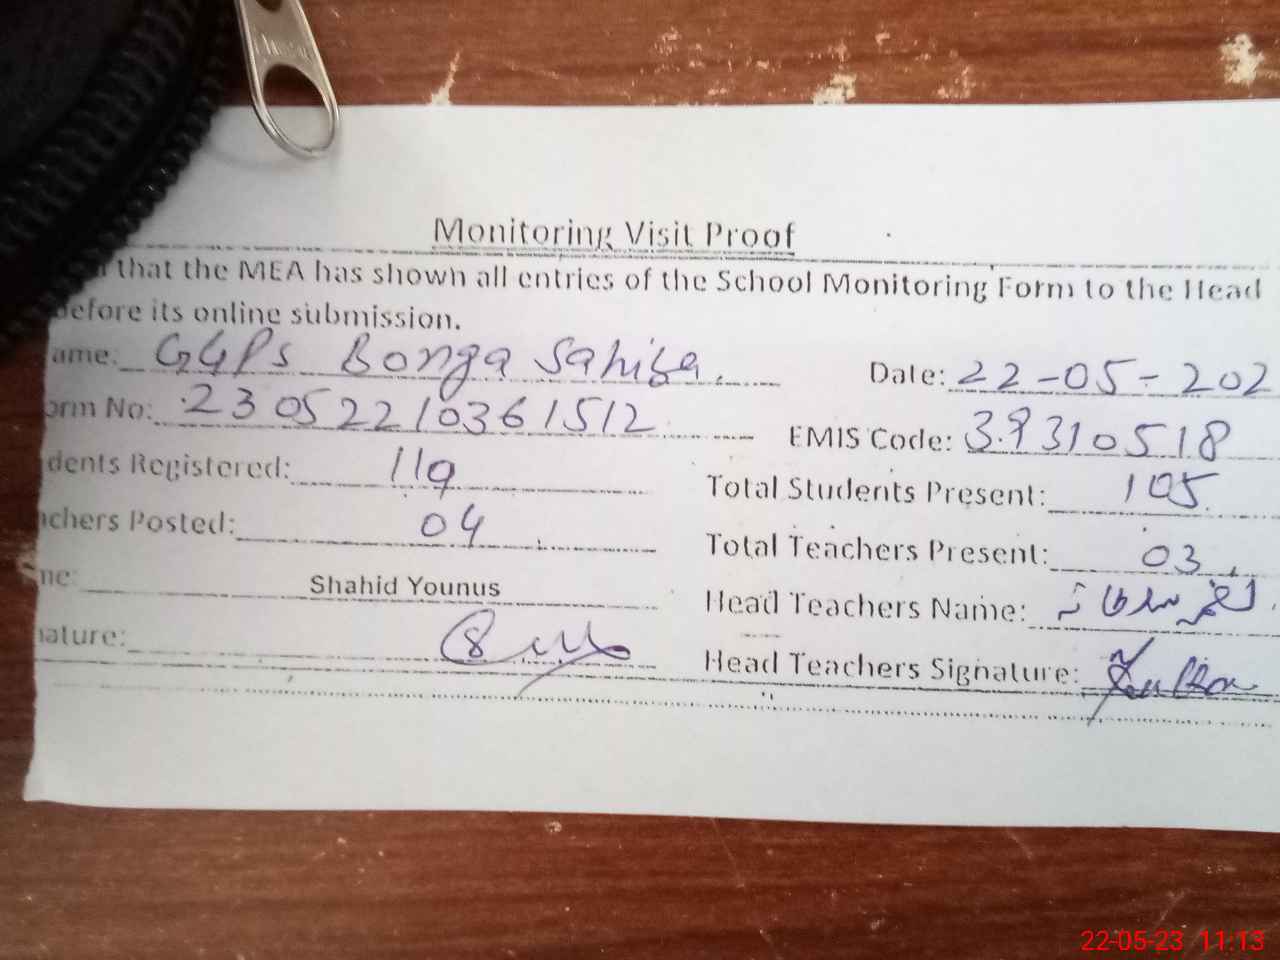 Monitoring Visit Proof
that the MEA has shown all entries of the School Monitoring Form to the Head
before its online submission.
ame: GGPS Bonga Sahiba. Date: 22-05-202
orm No: 23052210361512 EMIS Code: 39310518
dents Registered: 119 Total Students Present: 105
achers Posted: 04 Total Teachers Present: 03
me: Shahid Younus Head Teachers Name:
nature: Head Teachers Signature:
22-05-23 11:13